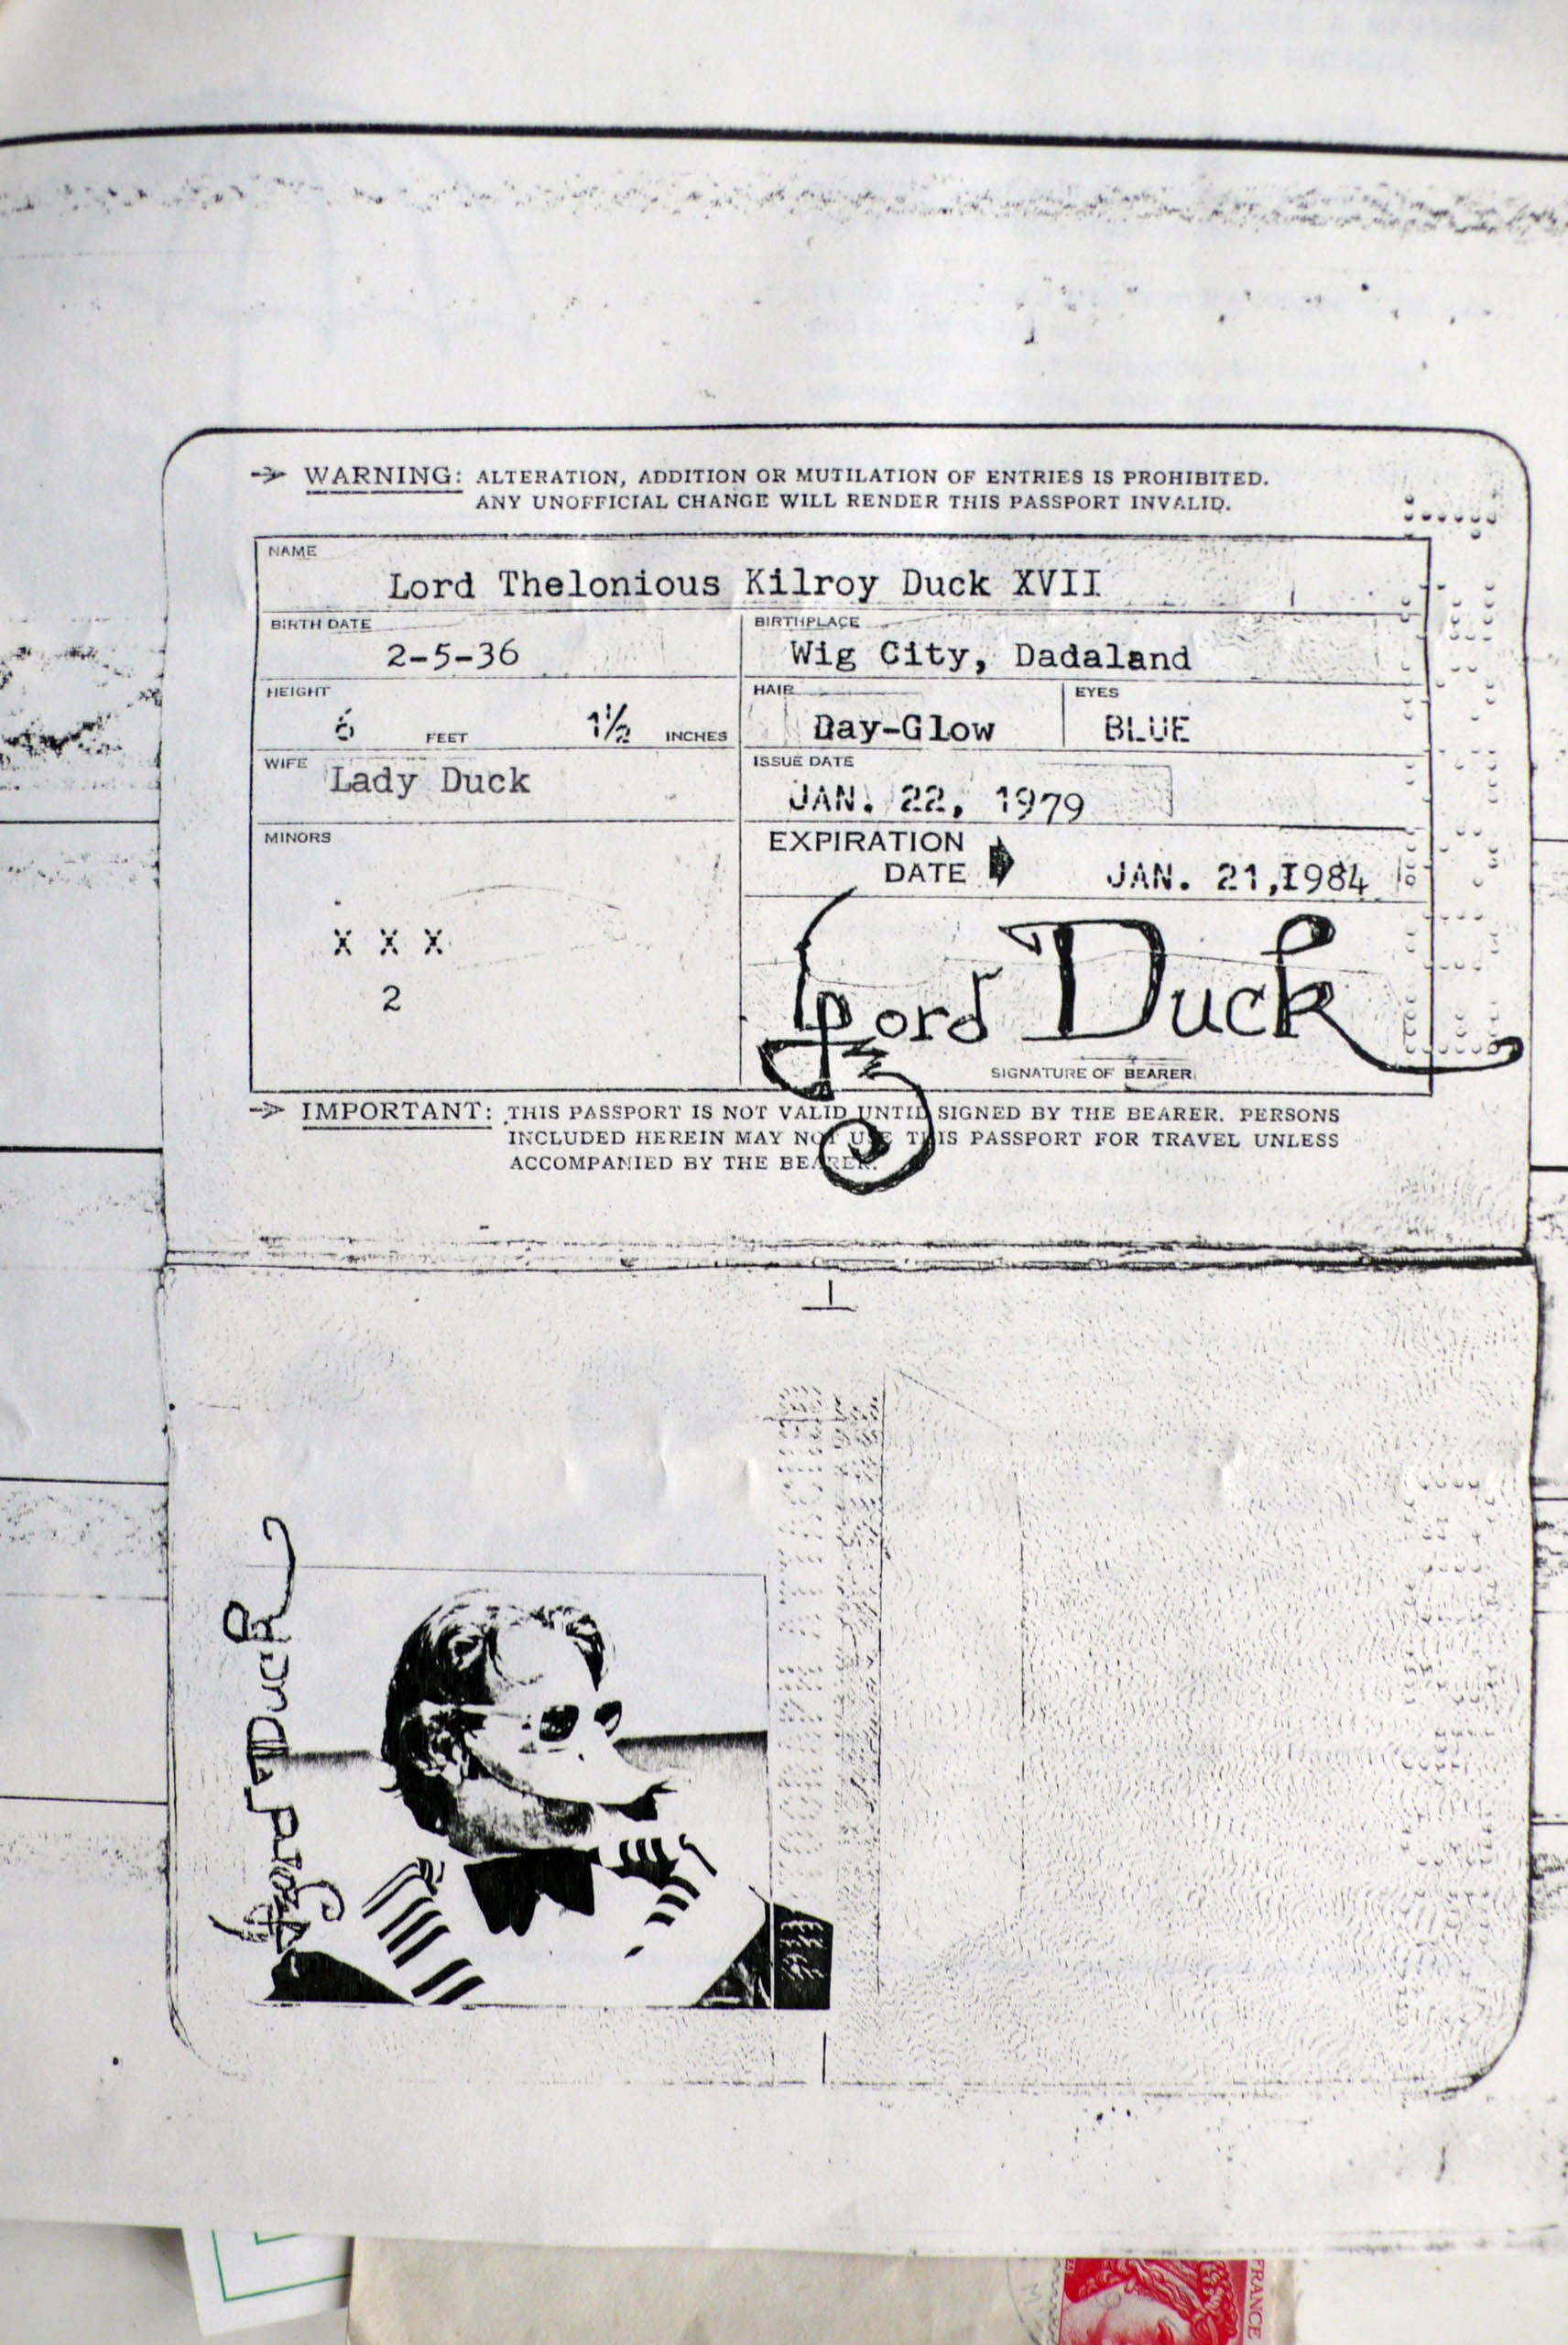 WARNING: ALTERATION, ADDITION OR MUTILATION OF ENTRIES IS PROHIBITED.
ANY UNOFFICIAL CHANGE WILL RENDER THIS PASSPORT INVALID.
NAME
Lord Thelonious Kilroy Duck XVII
BIRTH DATE
2-5-36
BIRTHPLACE
Wig City, Dadaland
HEIGHT
6 FEET 1½ INCHES
HAIR
Day-Glow
EYES
BLUE
WIFE Lady Duck
ISSUE DATE
JAN. 22, 1979
MINORS
X X X
2
EXPIRATION
DATE JAN. 21, 1984
Lord Duck
SIGNATURE OF BEARER
IMPORTANT: THIS PASSPORT IS NOT VALID UNTIL SIGNED BY THE BEARER. PERSONS
INCLUDED HEREIN MAY NOT USE THIS PASSPORT FOR TRAVEL UNLESS
ACCOMPANIED BY THE BEARER.
Lord Duck
FRANCE